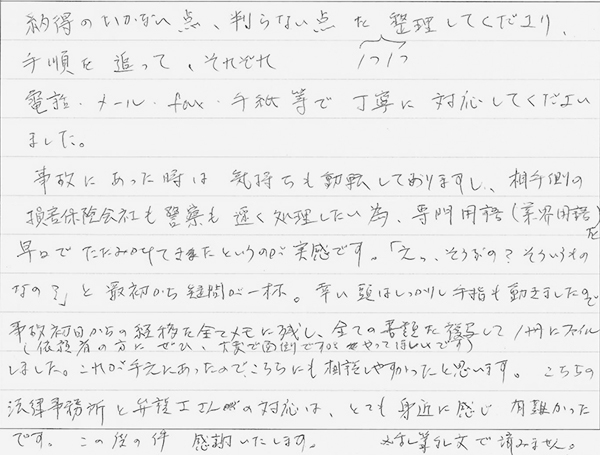 納得のいかない点、判らない点を整理してくださり、
手順を追って、それぞれ 1つ1つ
電話・メール・fax・手紙等で丁寧に対応してください
ました。
事故にあった時は気持ちも動転しておりますし、相手側の
損害保険会社も警察も速く処理したい為、専門用語(業界用語)を
早口でたたみかけてきたというのが実感です。「えっ、そうなの?そういうもの
なの?」と最初から疑問が一杯。幸い頭はしっかりし手指も動きましたので
事故初日からの経緯を全てメモに残し、全ての書類を複写して1冊にファイル
(依頼者の方にぜひ、大変で面倒ですがやってほしいです)
しました。これが手元にあったのでこちらにも相談しやすかったと思います。こちらの
法律事務所と弁護士 の対応は、とても身近に感じ有難かった
です。この度の件 感謝いたします。 乱筆乱文で済みません。